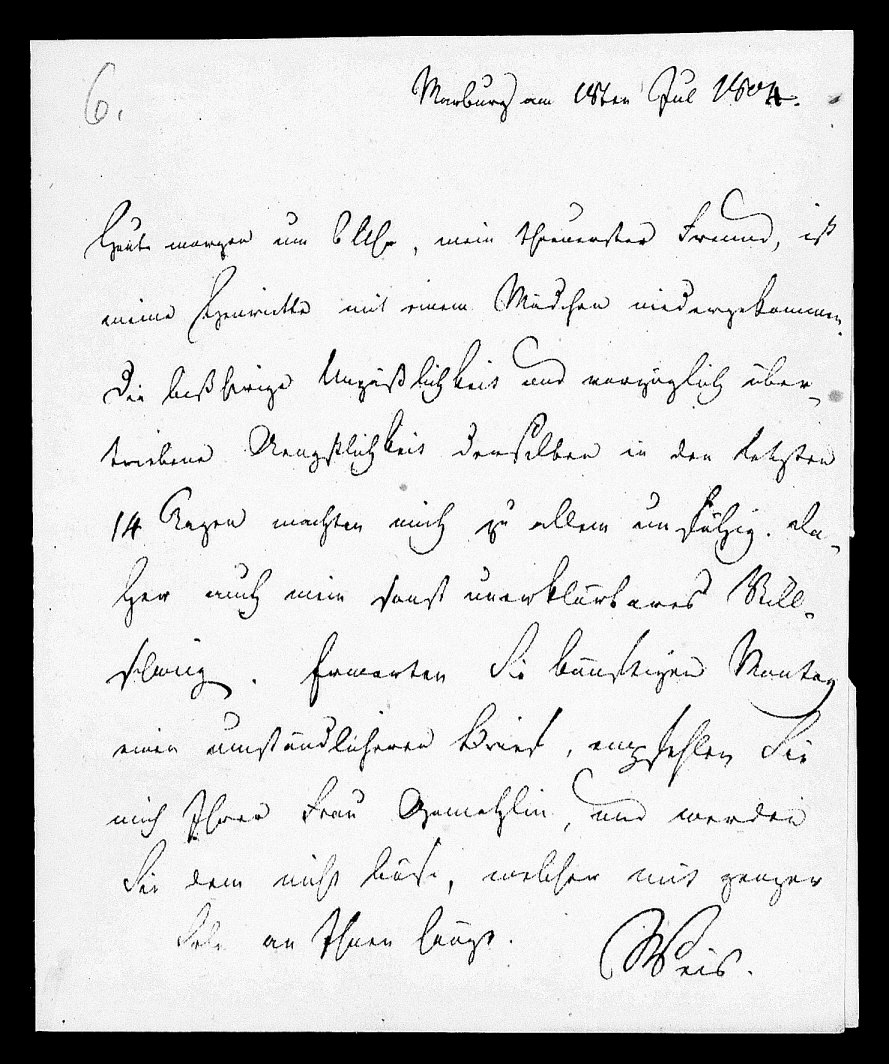 6.
Marburg am 18ten Jul 1804.
Heute morgen um 6 Uhr, mein theuerster Freund, ist
meine Henriette mit einem Mädchen niedergekommen.
Die bißherige Unpäßlichkeit und vorzüglich über-
triebene Aengstlichkeit derselben in den letzten
14 Tagen machten mich zu allem unfähig. Da-
her auch mein sonst unerklärbares Still-
schweig. Erwarten Sie künftigen Montag
einen umständlicheren Brief, empfehlen Sie
mich Ihrer Frau Gemahlin, und werden
Sie dem nicht böse, welcher mit ganzer
Sele an Ihnen hängt.
Weis.